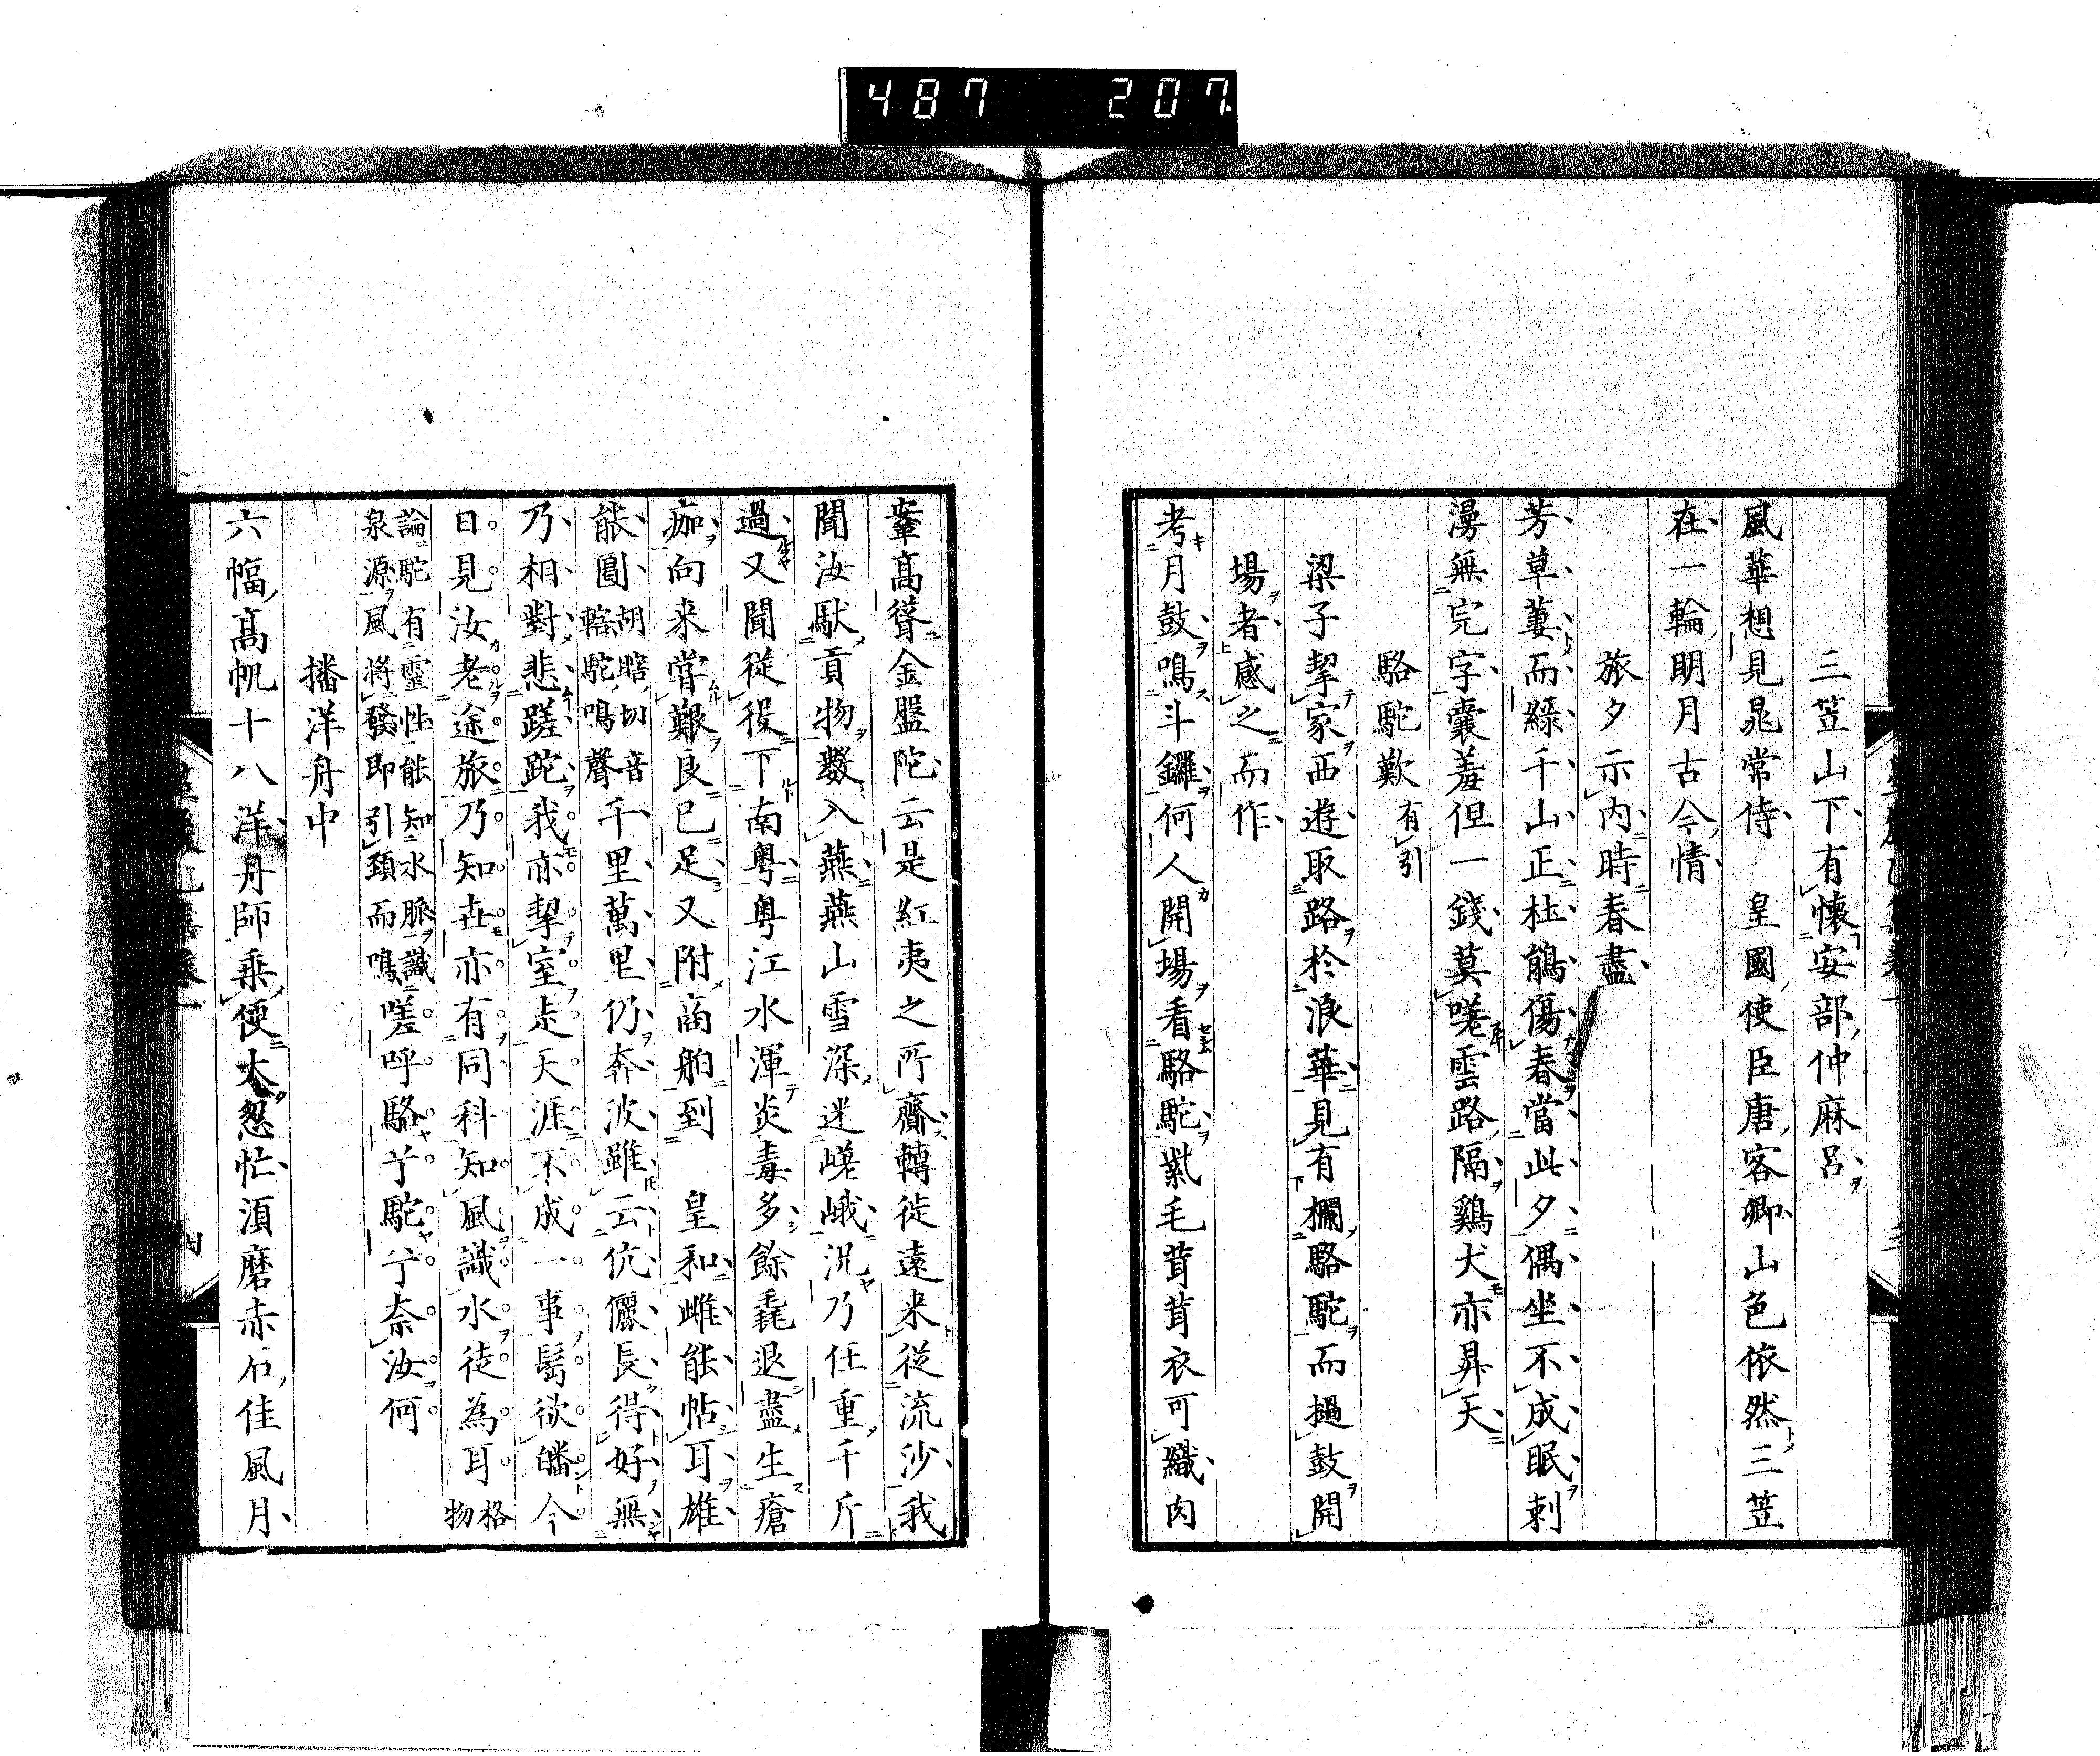 487 207
三笠山下有懷安部仲麻呂
風華想見晁常侍 皇國使臣唐客卿山色依然三笠
在一輪明月古今情
旅夕示内時春盡
芳草萋而綠千山正杜鵑傷春當此夕偶坐不成眠刺
漫無完字囊羞但一錢莫嗟雲路隔鷄犬亦昇天
駱駝歎有引
梁子挈家西遊取路於浪華見有欄駱駝而撾鼓開
場者感之而作
考月鼓鳴斗鑼何人開場看駱駝紫毛茸茸衣可織肉
峯髙聳金盤陀云是紅夷之所齎轉徙遠来從流沙我
聞汝馱貢物數入燕燕山雪深迷嵯峨況乃任重千斤
過又聞從役下南粤粤江水渾炎毒多餘毳退盡生瘡
痂向来甞艱良已足又附商舶到 皇和雌能帖耳雄
能圄胡瞎切音轄駝鳴聲千里萬里仍奔波雖云伉儷長得好無
乃相對悲蹉跎我亦挈室走天涯不成一事髩欲皤今
日見汝老途旅乃知世亦有同科知風識水徒為耳格物
論駝有靈性能知水脈識泉源風將發即引頸而鳴嗟呼駱兮駝兮奈汝何
播洋舟中
六幅髙帆十八洋舟師乗便太怱忙湏磨赤石佳風月